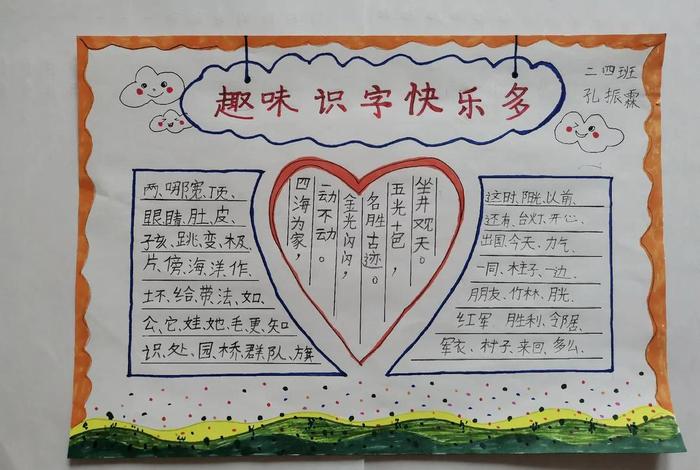 趣味识字快乐多
二四班
孔振霖
两、哪、宽、顶、
眼、睛、肚、皮、
孩、跳、变、极、
片、傍、海、洋、作、
坏、给、带、法、如、
公、它、娃、她、毛、更、知
识、处、园、桥、群、队、旗
坐井观天。
五光十色，
名胜古迹。
金光闪闪，
动不动。
四海为家，
这时、阳光、以前、
还有、台灯、开心、
出国、今天、力气、
一同、柱子、一边、
朋友、竹林、月光、
红军 胜利、邻居、
军衣、村子、来回、多么、